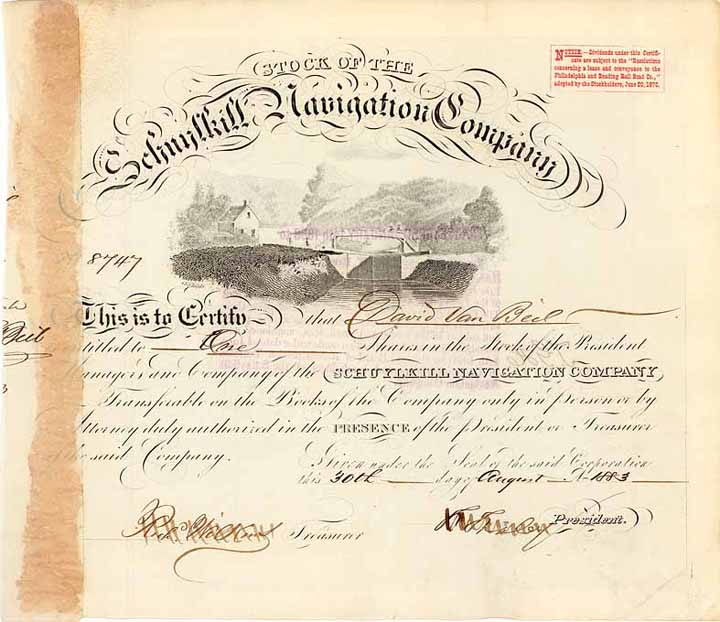 STOCK OF THE
Schuylkill Navigation Company
NOTICE.—Dividends under this Certifi-
cate are subject to the "Resolutions
concerning a lease and conveyance to the
Philadelphia and Reading Rail Road Co.,"
adopted by the Stockholders, June 20, 1870.
8747
Beil
This is to Certify that David Van Beil
titled to One Shares in the Stock of the President
Managers and Company of the SCHUYLKILL NAVIGATION COMPANY
Transferable on the Books of the Company only in person or by
Attorney duly authorized in the PRESENCE of the president or Treasurer
of the said Company.
Given under the Seal of the said Corporation
this 30th day of August A 1883
Treasurer
President.